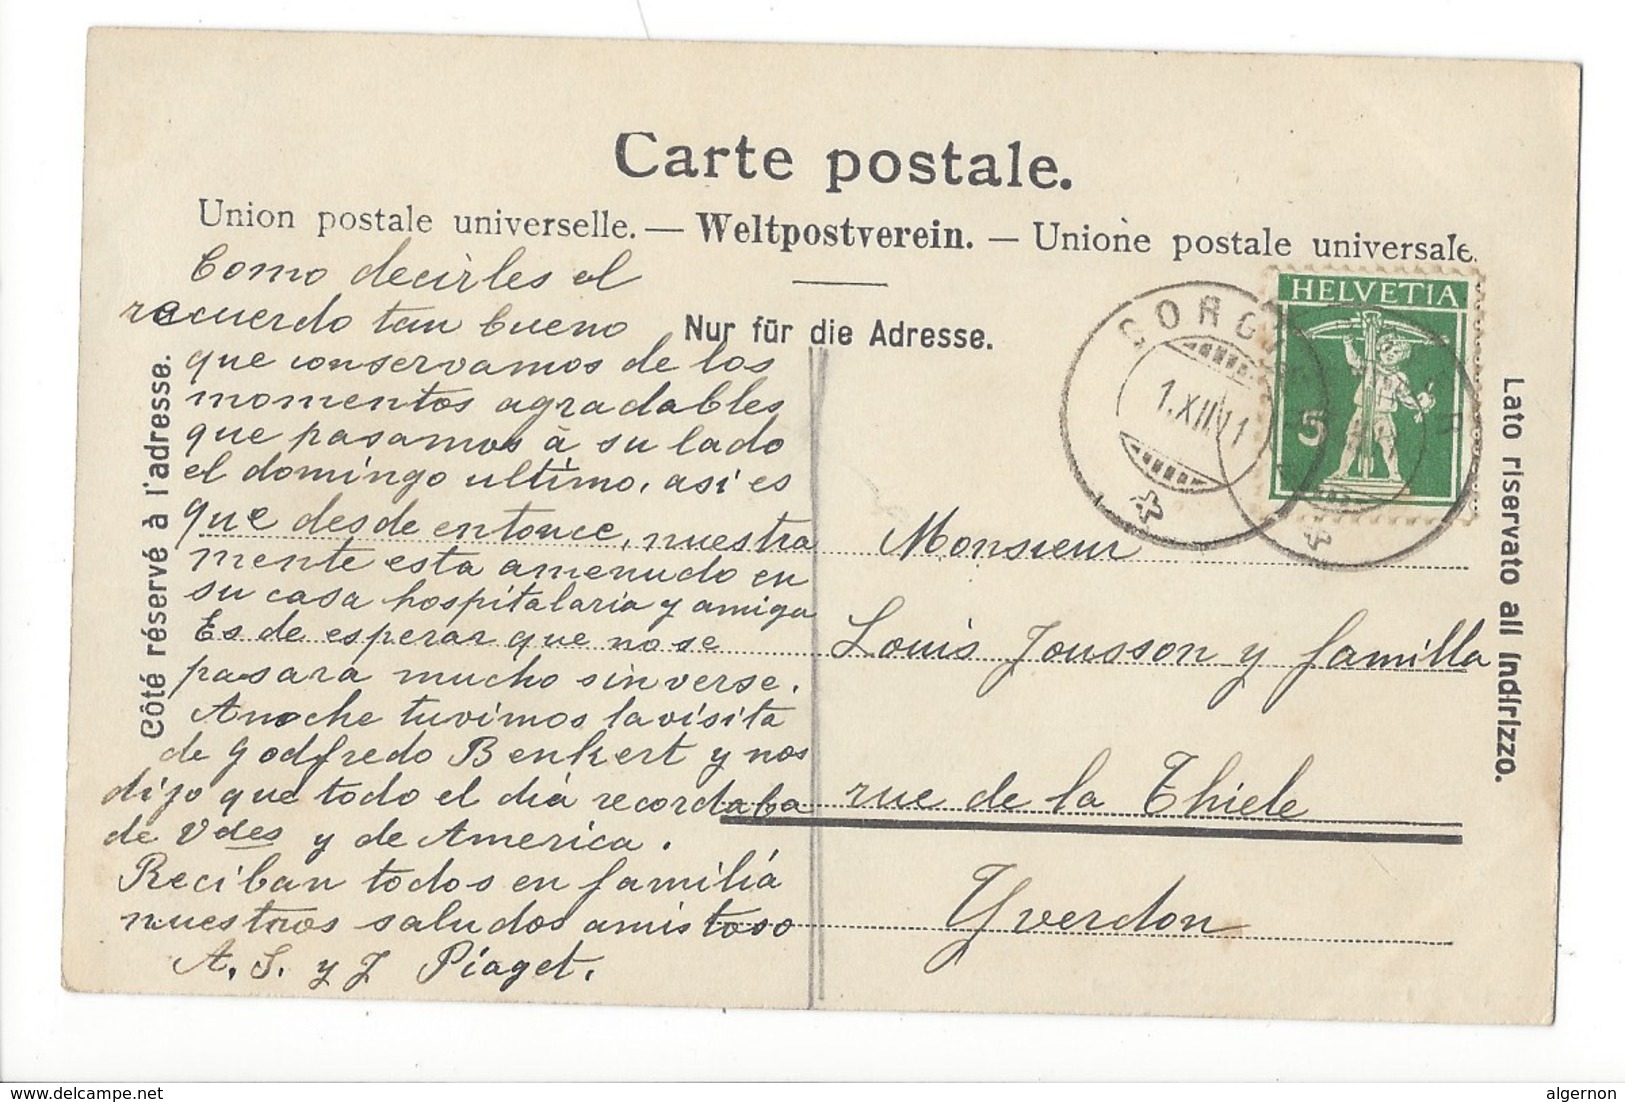 Carte postale.
Union postale universelle. — Weltpostverein. — Unione postale universale.
Nur für die Adresse.
Côté réservé à l'adresse.
Lato riservato all indrizzo.
HELVETIA
5
GORGI
1.XII.11
Como decirles el
recuerdo tan bueno
que conservamos de los
momentos agradables
que pasamos à su lado
el domingo ultimo, asi es
que desde entonce, nuestra
mente esta amenudo en
su casa hospitalaria y amiga
Es de esperar que no se
pasara mucho sin verse.
Anoche tuvimos la visita
de Godfredo Benkert y nos
dijo que todo el dia recordaba
de Vdes y de America.
Reciban todos en familia
nuestros saludos amistoso
A. S. y J. Piaget.
Monsieur
Louis Jousson y familla
rue de la Thiele
Yverdon
www.delcampe.net
algernon